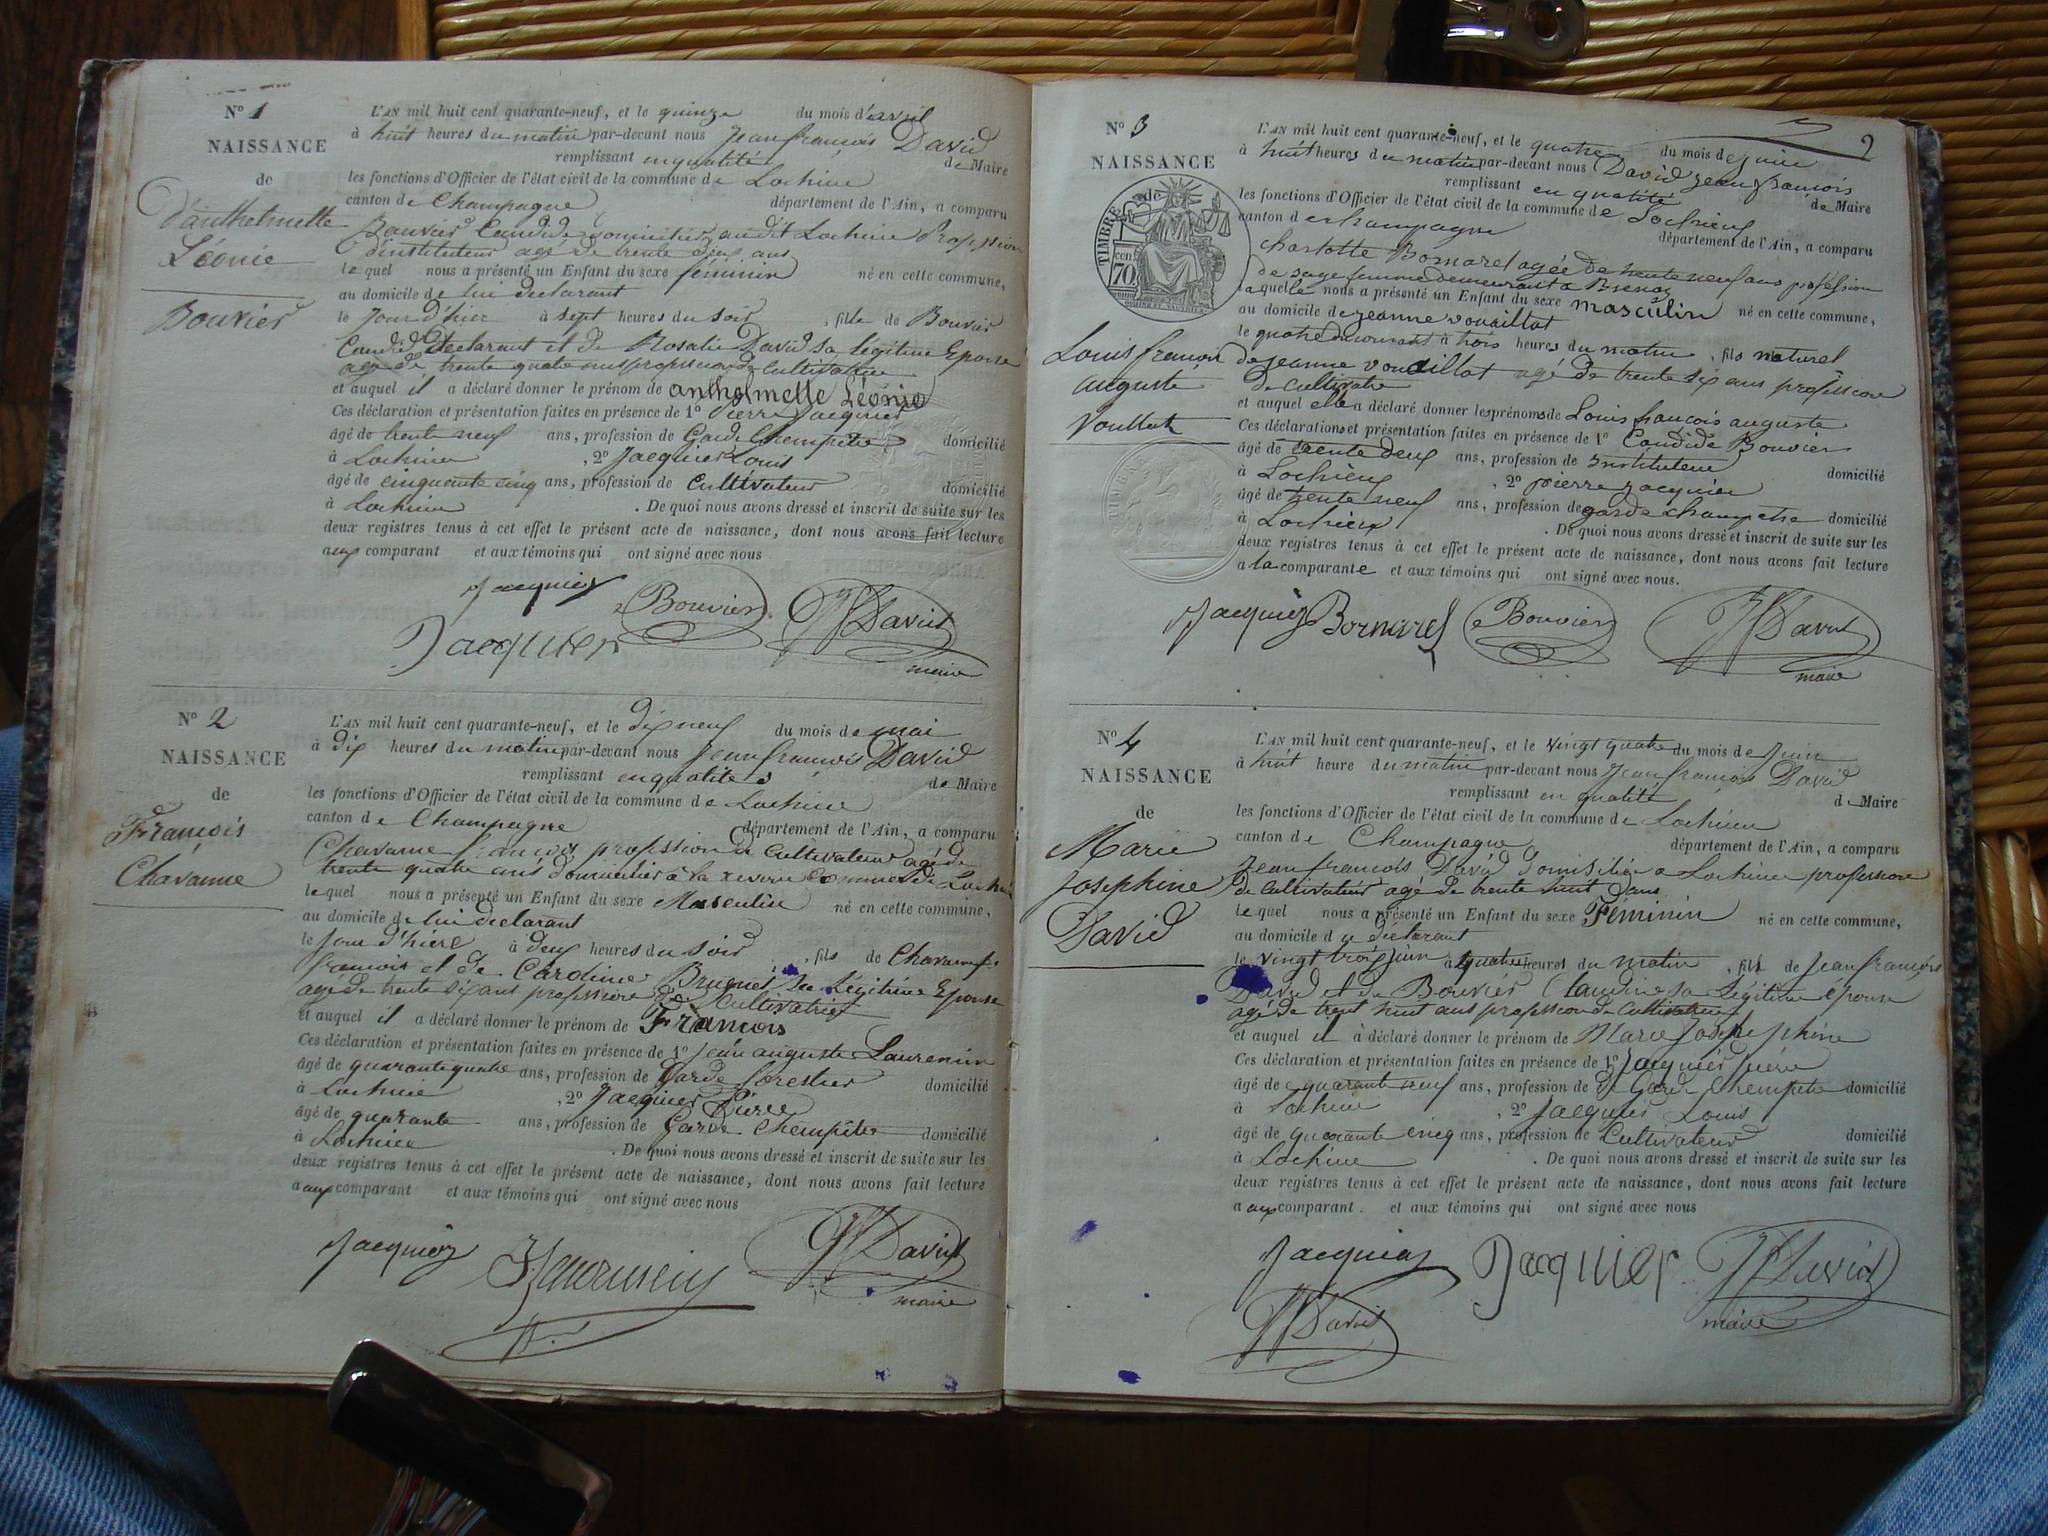 N° 1
NAISSANCE
de
d'anthelmette
Léonie
Bouvier
L'AN mil huit cent quarante-neuf, et le quinze du mois d'avril
à huit heures du matin par-devant nous Jean françois David
remplissant en qualité de Maire
les fonctions d'Officier de l'état civil de la commune de Lochieu
canton de Champagne département de l'Ain, a comparu
Bouvier Candide domicilié audit Lochieu Profession
d'instituteur agé de trente deux ans
le quel nous a présenté un Enfant du sexe féminin né en cette commune,
au domicile de lui declarant
le Jour d'hier à sept heures du soir, fille de Bouvier
Candide Declarant et de Rosalie David sa légitime Epouse
agé de trente quatre ans profession de cultivatrice
et auquel il a déclaré donner le prénom de anthelmette Léonie
Ces déclaration et présentation faites en présence de 1° Pierre Jacquier
âgé de trente neuf ans, profession de Garde Chempêtre domicilié
à Lochieu, 2° Jacquier Louis
âgé de cinquante cinq ans, profession de Cultivateur domicilié
à Lochieu. De quoi nous avons dressé et inscrit de suite sur les
deux registres tenus à cet effet le présent acte de naissance, dont nous avons fait lecture
aux comparant et aux témoins qui ont signé avec nous
Jacquier Bouvier JF David
Jacquier maire
N° 2
NAISSANCE
de
François
Chavanne
L'AN mil huit cent quarante-neuf, et le dix neuf du mois de mai
à dix heures du matin par-devant nous Jean françois David
remplissant en qualité de Maire
les fonctions d'Officier de l'état civil de la commune de Lochieu
canton de Champagne département de l'Ain, a comparu
Chavanne françois profession de Cultivateur agé de
trente quatre ans domicilier à la Commune de Lochieu
le quel nous a présenté un Enfant du sexe Masculin né en cette commune,
au domicile de lui declarant
le Jour d'hier à deux heures du soir, fils de Chavanne
francois et de Caroline Brugnet sa Légitime Epouse
agé de trente six ans profession de Cultivatrice
et auquel il a déclaré donner le prénom de François
Ces déclaration et présentation faites en présence de 1° Jean auguste Laurencin
âgé de quarante quatre ans, profession de Garde forestier domicilié
à Lochieu, 2° Jacquier Pierre
âgé de quarante ans, profession de Garde Chempêtre domicilié
à Lochieu. De quoi nous avons dressé et inscrit de suite sur les
deux registres tenus à cet effet le présent acte de naissance, dont nous avons fait lecture
a aux comparant et aux témoins qui ont signé avec nous
Jacquier JF David
maire
2
N° 3
NAISSANCE
de
TIMBRE
CEN
70
Louis françois
auguste
Voullat
L'AN mil huit cent quarante-neuf, et le quatre du mois de juin
à huit heures du matin par-devant nous David jean françois
remplissant en qualité de Maire
les fonctions d'Officier de l'état civil de la commune de Lochieu
canton de champagne département de l'Ain, a comparu
charlotte Bornarel agée de trente neuf ans profession
de sage femme demeurant a Brenaz
laquelle nous a présenté un Enfant du sexe masculin né en cette commune,
au domicile de jeanne vouaillat
le quatre du courant à trois heures du matin, fils naturel
de jeanne vouaillat agé de trente six ans profession
de cultivatre
et auquel elle a déclaré donner les prénoms de Louis françois auguste
Ces déclaration et présentation faites en présence de 1° Candide Bouvier
âgé de trente deux ans, profession de Instituteur domicilié
à Lochieu, 2° pierre jacquier
âgé de trente neuf ans, profession de garde champetre domicilié
à Lochieu. De quoi nous avons dressé et inscrit de suite sur les
deux registres tenus à cet effet le présent acte de naissance, dont nous avons fait lecture
a la comparante et aux témoins qui ont signé avec nous.
Jacquier Bornarel Bouvier JF David
maire
N° 4
NAISSANCE
de
Marie
Josephine
David
L'AN mil huit cent quarante-neuf, et le vingt quatre du mois de Juin
à huit heure du matin par-devant nous Jean françois David
remplissant en qualité de Maire
les fonctions d'Officier de l'état civil de la commune de Lochieu
canton de Champagne département de l'Ain, a comparu
Jean françois David domisilié a Lochieu profession
de Cultivateur agé de trente huit ans
le quel nous a présenté un Enfant du sexe Féminin né en cette commune,
au domicile de declarant
le vingt trois juin à quatre heures du matin, fille de Jean françois
David et de Bouvier Claudine sa Légitime epouse
agé de trent huit ans profession de Cultivatrice
et auquel il à déclaré donner le prénom de Marie Josephine
Ces déclaration et présentation faites en présence de 1° Jacquier Pierre
âgé de quarante neuf ans, profession de Garde Chempetre domicilié
à Lochieu, 2° Jacquier Louis
âgé de quarante cinq ans, profession de Cultivateur domicilié
à Lochieu. De quoi nous avons dressé et inscrit de suite sur les
deux registres tenus à cet effet le présent acte de naissance, dont nous avons fait lecture
a aux comparant. et aux témoins qui ont signé avec nous
Jacquier Jacquier JF David
JF David maire